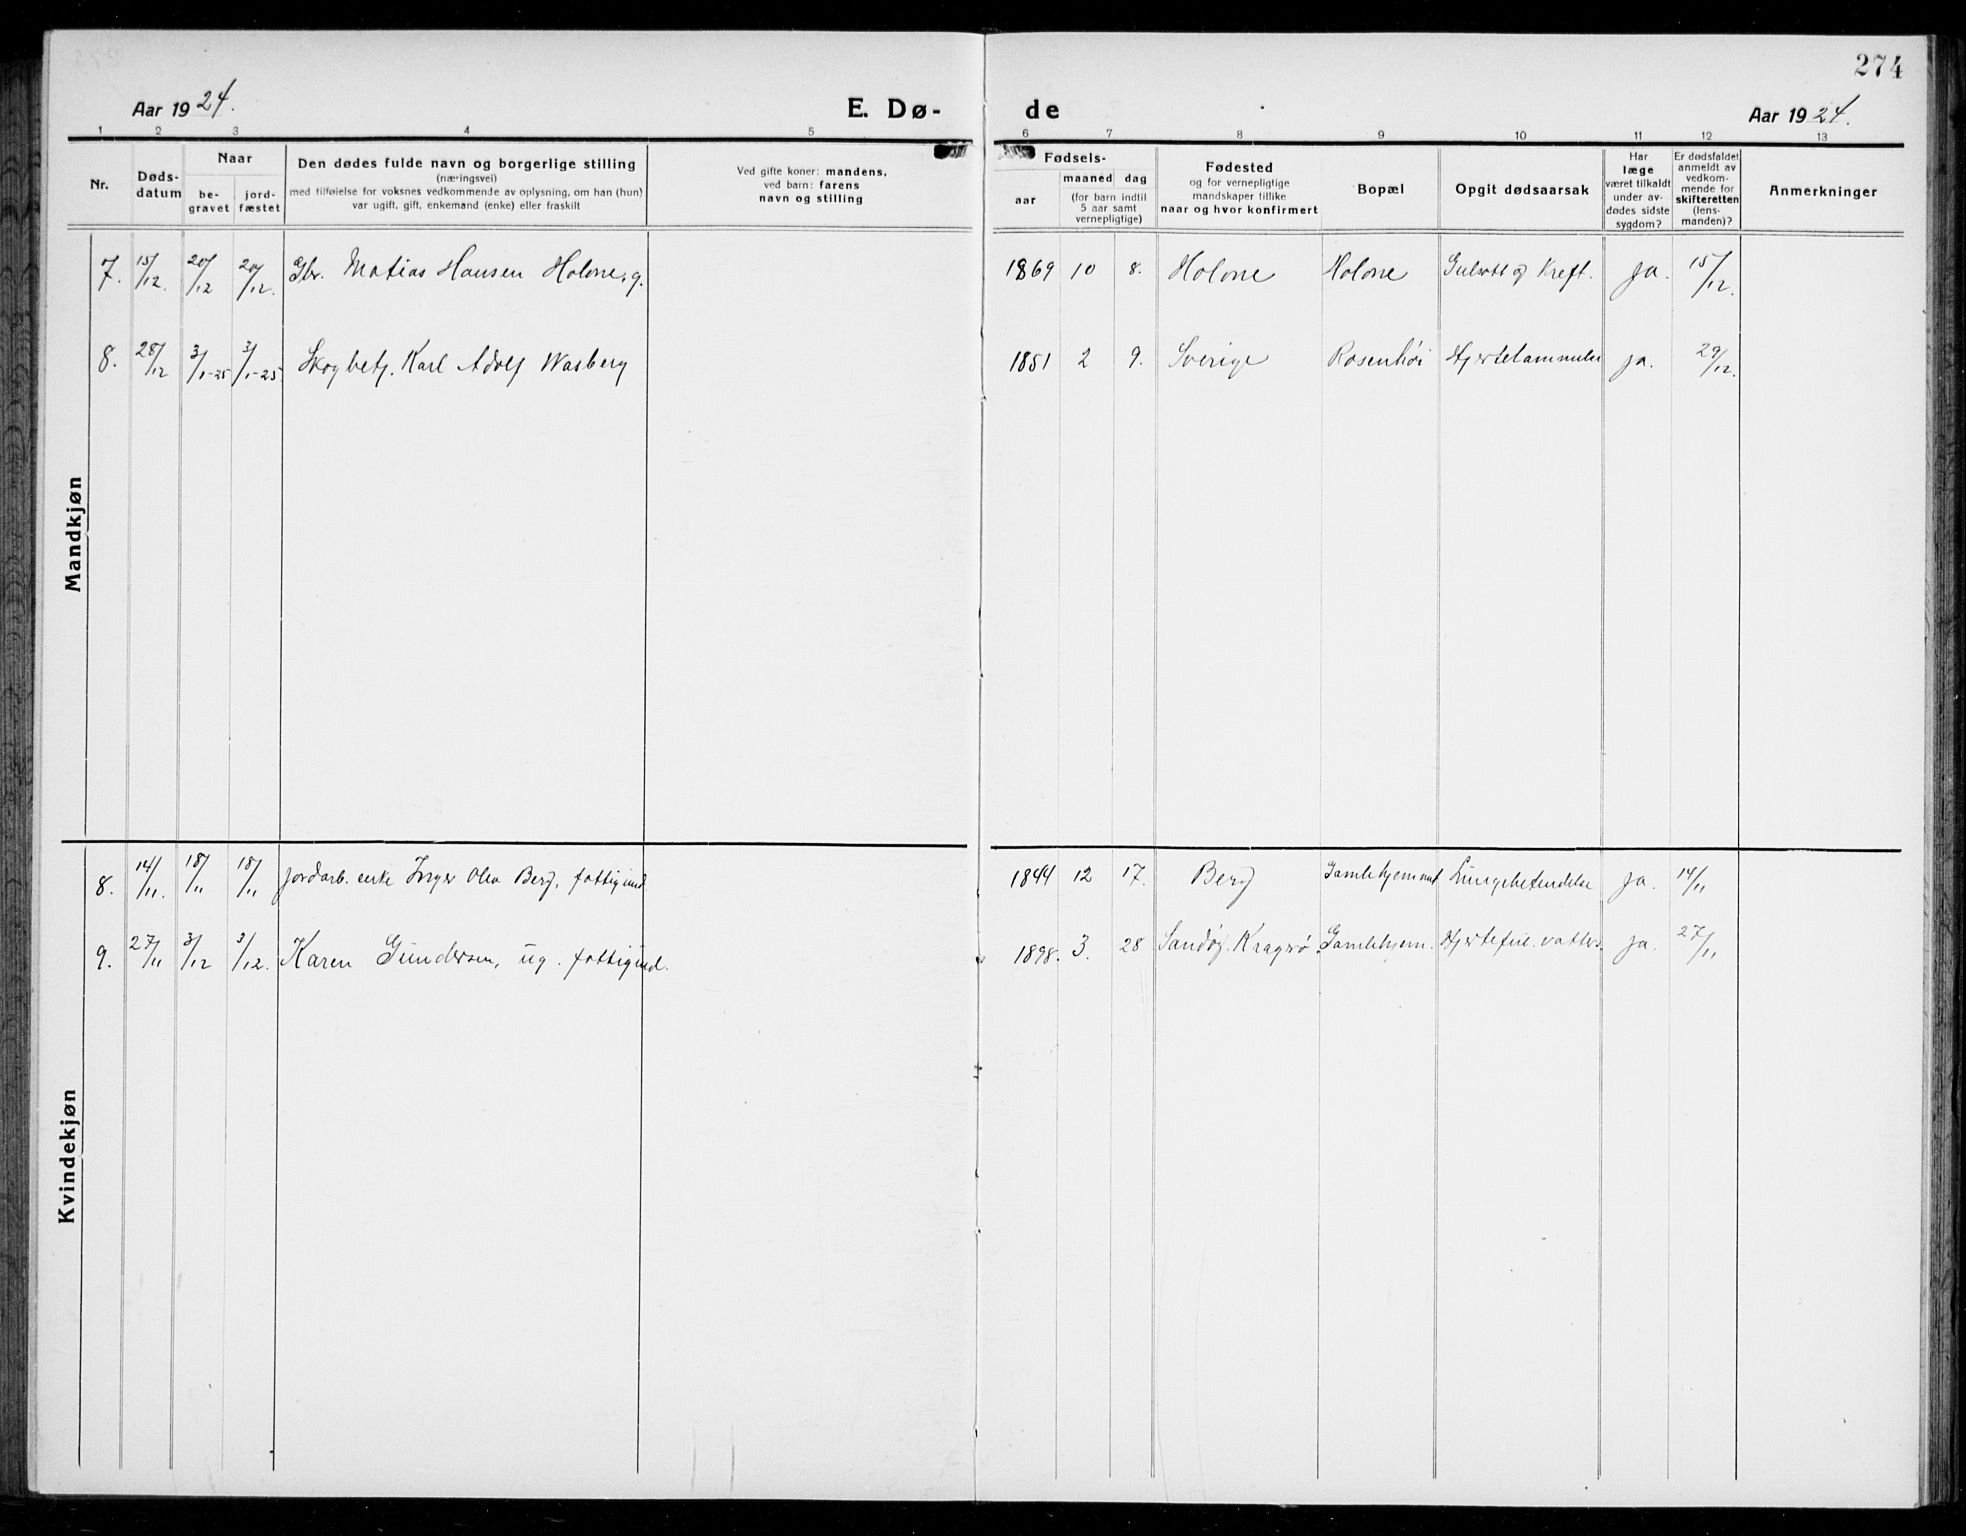 274
Aar 1924.
E. Dø-
de
Aar 1924.
1 2 3 4 5 6 7 8 9 10 11 12 13
Nr.
Døds-
datum
Naar
be-
gravet
jord-
fæstet
Den dødes fulde navn og borgerlige stilling
(næringsvei)
med tilføielse for voksnes vedkommende av oplysning, om han (hun)
var ugift, gift, enkemand (enke) eller fraskilt
Ved gifte koner: mandens,
ved barn: farens
navn og stilling
Fødsels-
aar
maaned dag
(for barn indtil
5 aar samt
vernepligtige)
Fødested
og for vernepligtige
mandskaper tillike
naar og hvor konfirmert
Bopæl
Opgit dødsaarsak
Har
læge
været tilkaldt
under av-
dødes sidste
sygdom?
Er dødsfaldet
anmeldt av
vedkom-
mende for
skifteretten
(lens-
manden)?
Anmerkninger
Mandkjøn
7. 15/12. 20/12 20/12. Gbr. Matias Hansen Holone, g. 1869 10 8. Holone Holone Gulsott og Kreft. ja. 15/12.
8. 28/12 3/1-25 3/1-25 Skogbetj. Karl Adolf Wasberg 1851 2 9. Sverige Rosenhöi Hjertelammelse ja. 29/12.
Kvindekjøn
8. 14/11. 18/11 18/11 Jordarb. enke Inger Olea Berg, fattigund. 1844 12 17. Berg Gamlehjemmet Lungebetendelse ja. 14/11
9. 27/11 3/12 3/12. Karen Gundersen, ug. fattigund. 1898. 3. 28 Sandøy. Kragerø Gamlehjem. Hjertefeil. vatters. ja. 27/11